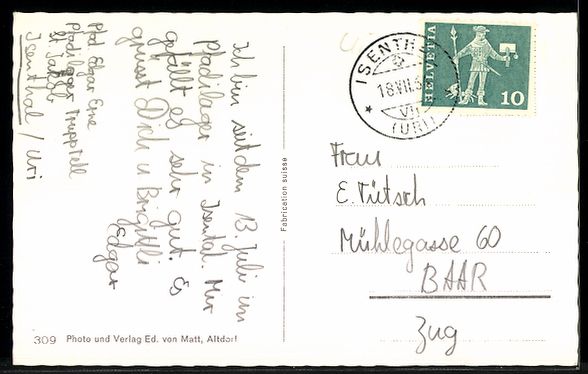 Ich bin seit dem 13. Juli im
Pfadilager in Isental. Mir
gefällt es sehr gut. Es
grüsst Dich u Brigitli
Edgar
Pfd. Edgar Erne
Pfadilager Trupp Tell
St. Jakob
Isenthal / Uri
Fabrication suisse
ISENTHAL
18.VIII.
(URI)
HELVETIA
10
Frau
E. Tütsch
Mühlegasse 60
BAAR
Zug
309 Photo und Verlag Ed. von Matt, Altdorf